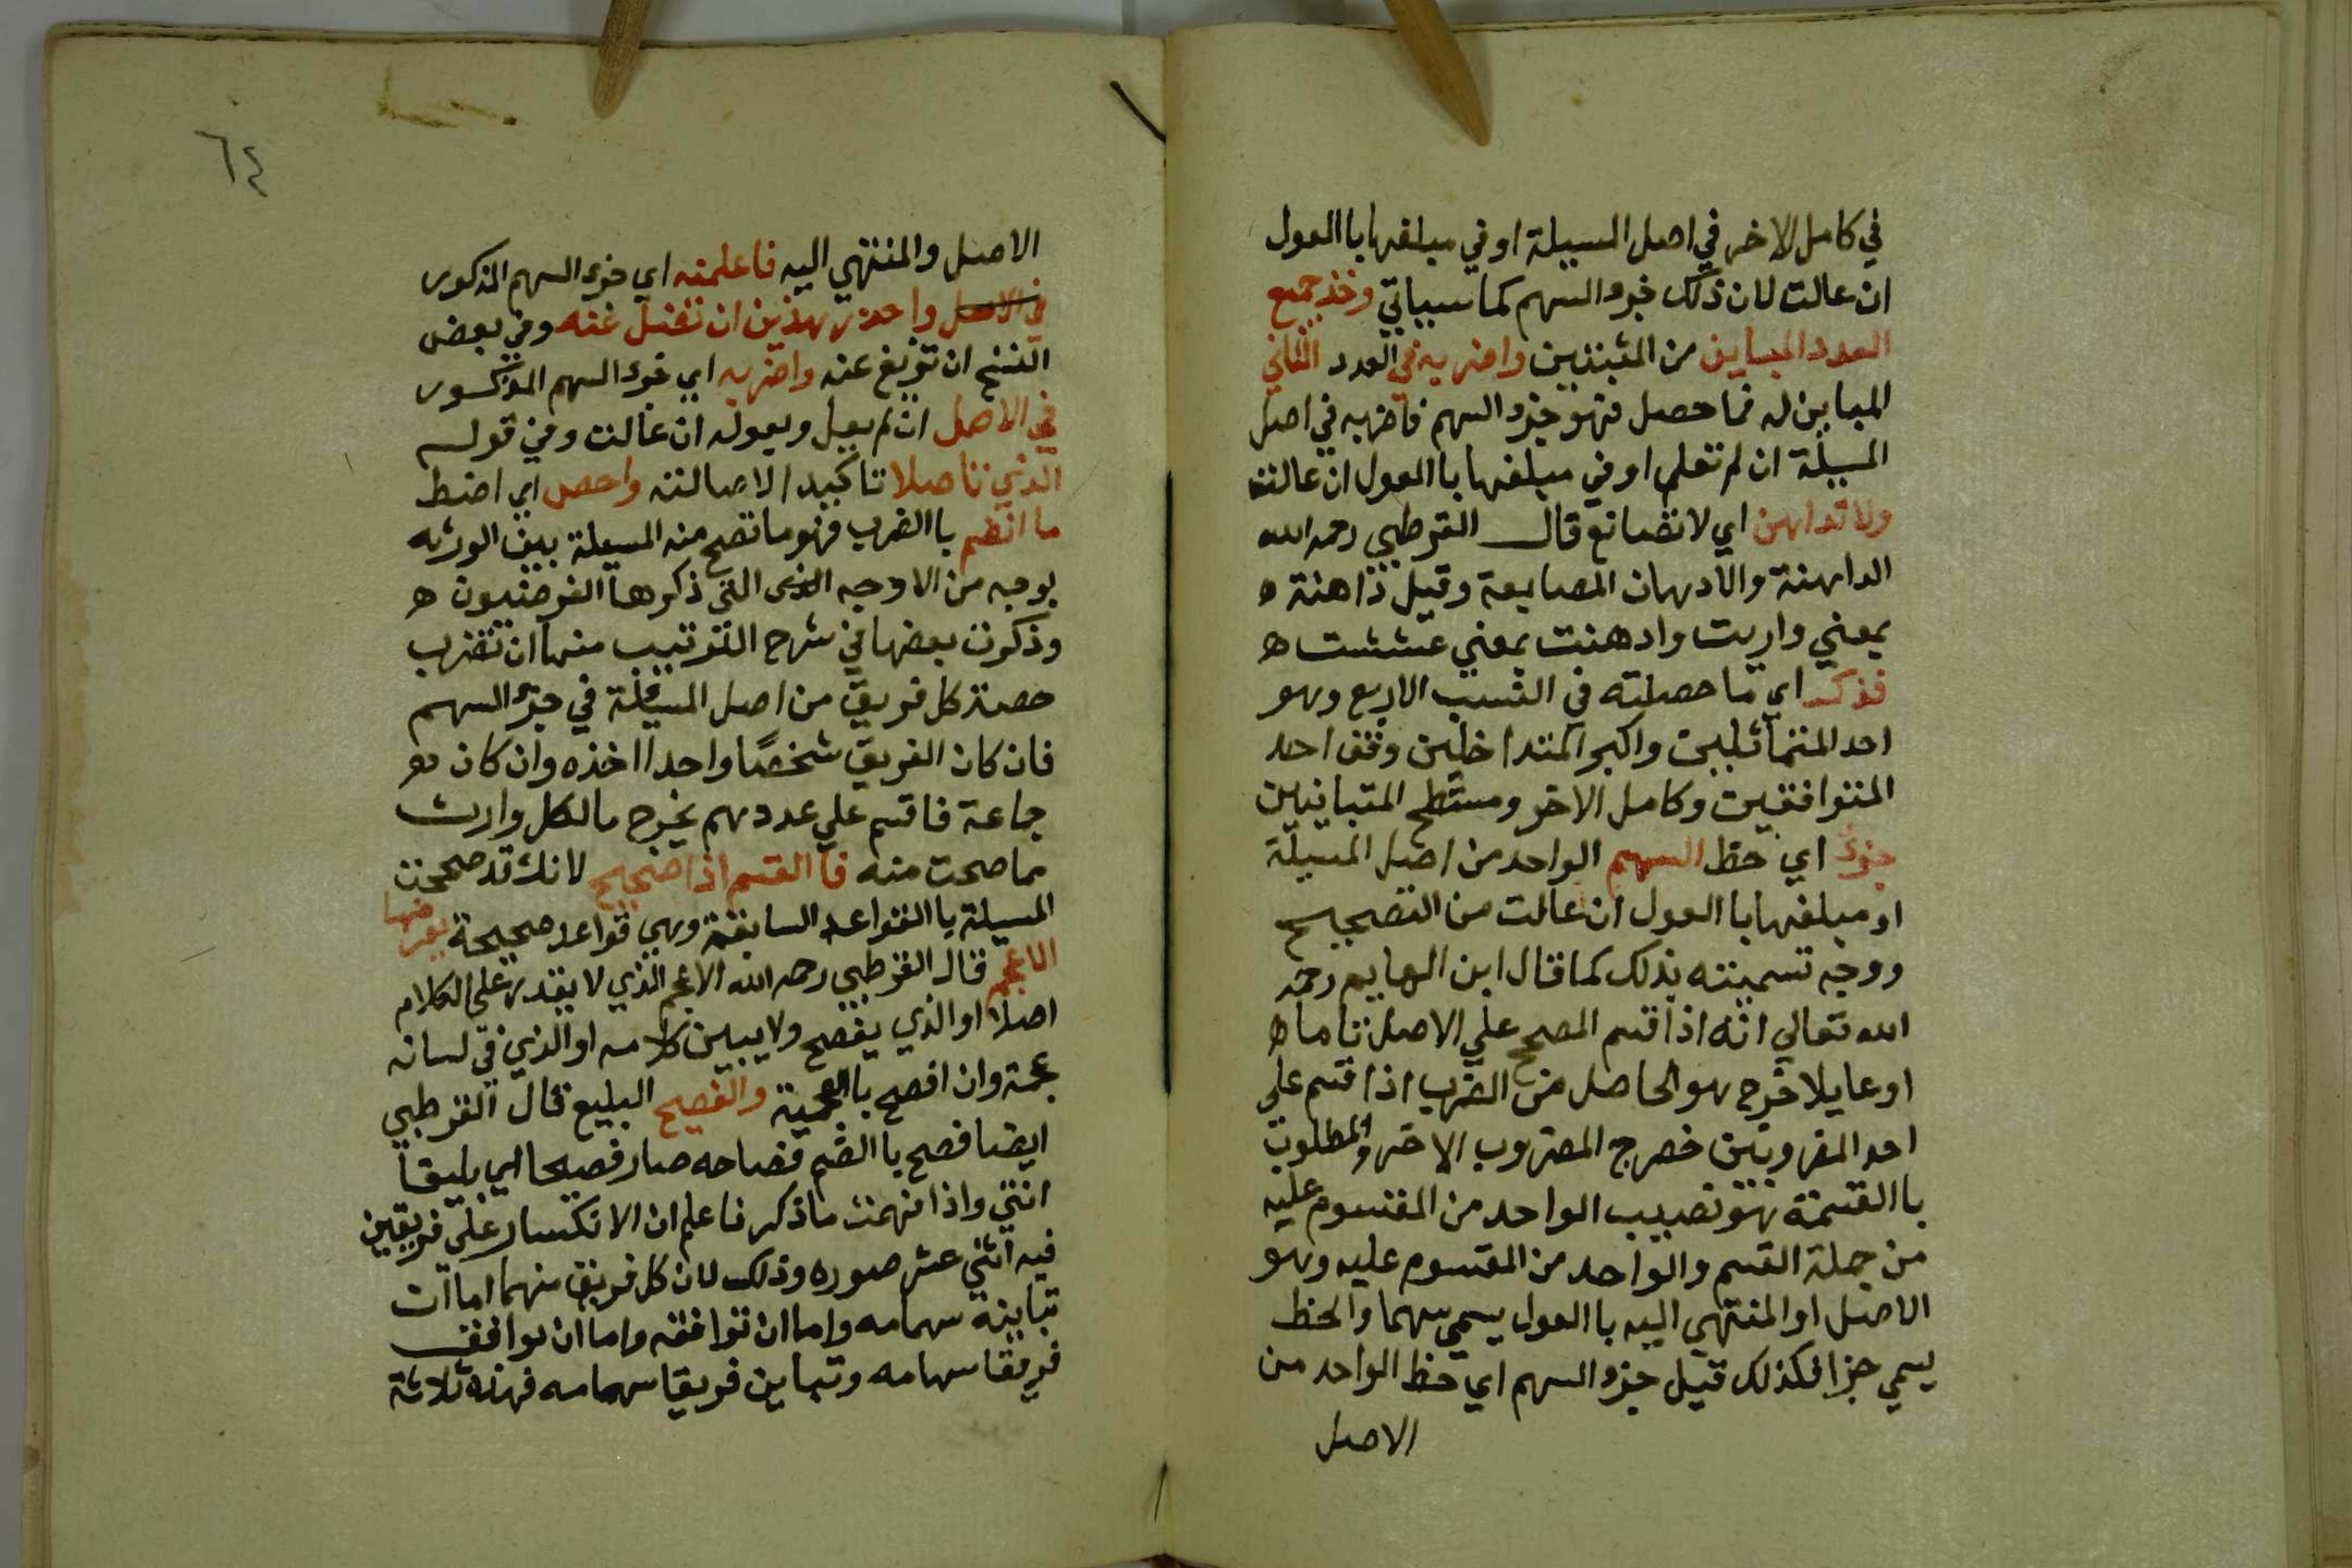 في كامل الاخر في اصل المسيلة او في مبلغها با العول
ان عالت لان ذلك جزء السهم كما سيياتي وخذ جميع
العدد المباين من المثبتين واضربه في العدد الثاني
المباين له فما حصل فهو جزء السهم فاضربه في اصل
المسيلة ان لم تعلم او في مبلغها با العول ان عالت
ولا تداهن اي لا تصانع قال القرطبي رحمه الله
المداهنة والادهان المصانعة وقيل داهنة ه
بمعني واريت وادهنت بمعني غششت ه
فذكـ اي ما حصلته في النسب الاربع وهو
احد المتماثليين واكبر المتداخلين وفق احد
المتوافقين وكامل الاخر ومسطح المتباينين
جزء اي حظ السهم الواحد من اصل المسيلة
او مبلغها با العول ان عالت من التصحيح
ووجه تسميته بذلك كما قال ابن الهايم رحمه
الله تعالي انه اذا قسم المصحح علي الاصل تاما ه
او عايلا خرج هو الحاصل من الضرب اذا قسم علي
احد المضروبين خصرج المضروب الاخر والمطلوب
با القسمة هو نصيب الواحد من المقسوم عليه
من جملة القسم والواحد من المقسوم عليه وهو
الاصل او المنتهي اليه با العول يسمي سهما والحظ
يسمي جزا فكذلك قيل جزء السهم اي حظ الواحد من
الاصل
٦٤
الاصل والمنتهي اليه فاعلمنه اي جزء السهم المذكور
في الاصل واحذر هديت ان تضل عنه وفي بعض
النسخ ان تزيغ عنه واضربه اي جزء السهم المذكور
في الاصل ان لم يعل ويعوله ان عالت وفي قوله
الذي تاصلا تاكيد الاصالته واحص اي اضبط
ما انضم با الضرب فهو ما تصح منه المسيلة بين الورثه
بوجه من الاوجه التي ذكرها الفرضيون ه
وذكرت بعضها في شرح الترتيب منها ان تضرب
حصة كل فريق من اصل المسيلة في جزء السهم
فان كان الفريق شخصًا واحدا اخذه وان كان ه
جماعة فاقسم علي عددهم يخرج ما لكل وارث
مما صحت منه فا القسم اذا صحيح لانك قد صححت
المسيلة با القواعد السابقة وهي قواعد صحيحة يعرفها
الاعجم قال القرطبي رحمه الله الاعجم الذي لا يقدر علي الكلام
اصلا او الذي يفصح ولا يبين كلامه او الذي في لسانه
عجمة وان افصح با العجمية والفصيح البليغ قال القرطبي
ايضا فصح با الضم فصاحه صار فصيحا اي بليغا
انتهي واذا فهمت ما ذكر فاعلم ان الانكسار علي فريقين
فيه اثني عشر صوره وذلك لان كل فريق منهما اما ان
تباينه سهامه واما ان توافقه واما ان توافق
فريقا سهامه وتباين فريقا سهامه فهذه ثلاثة